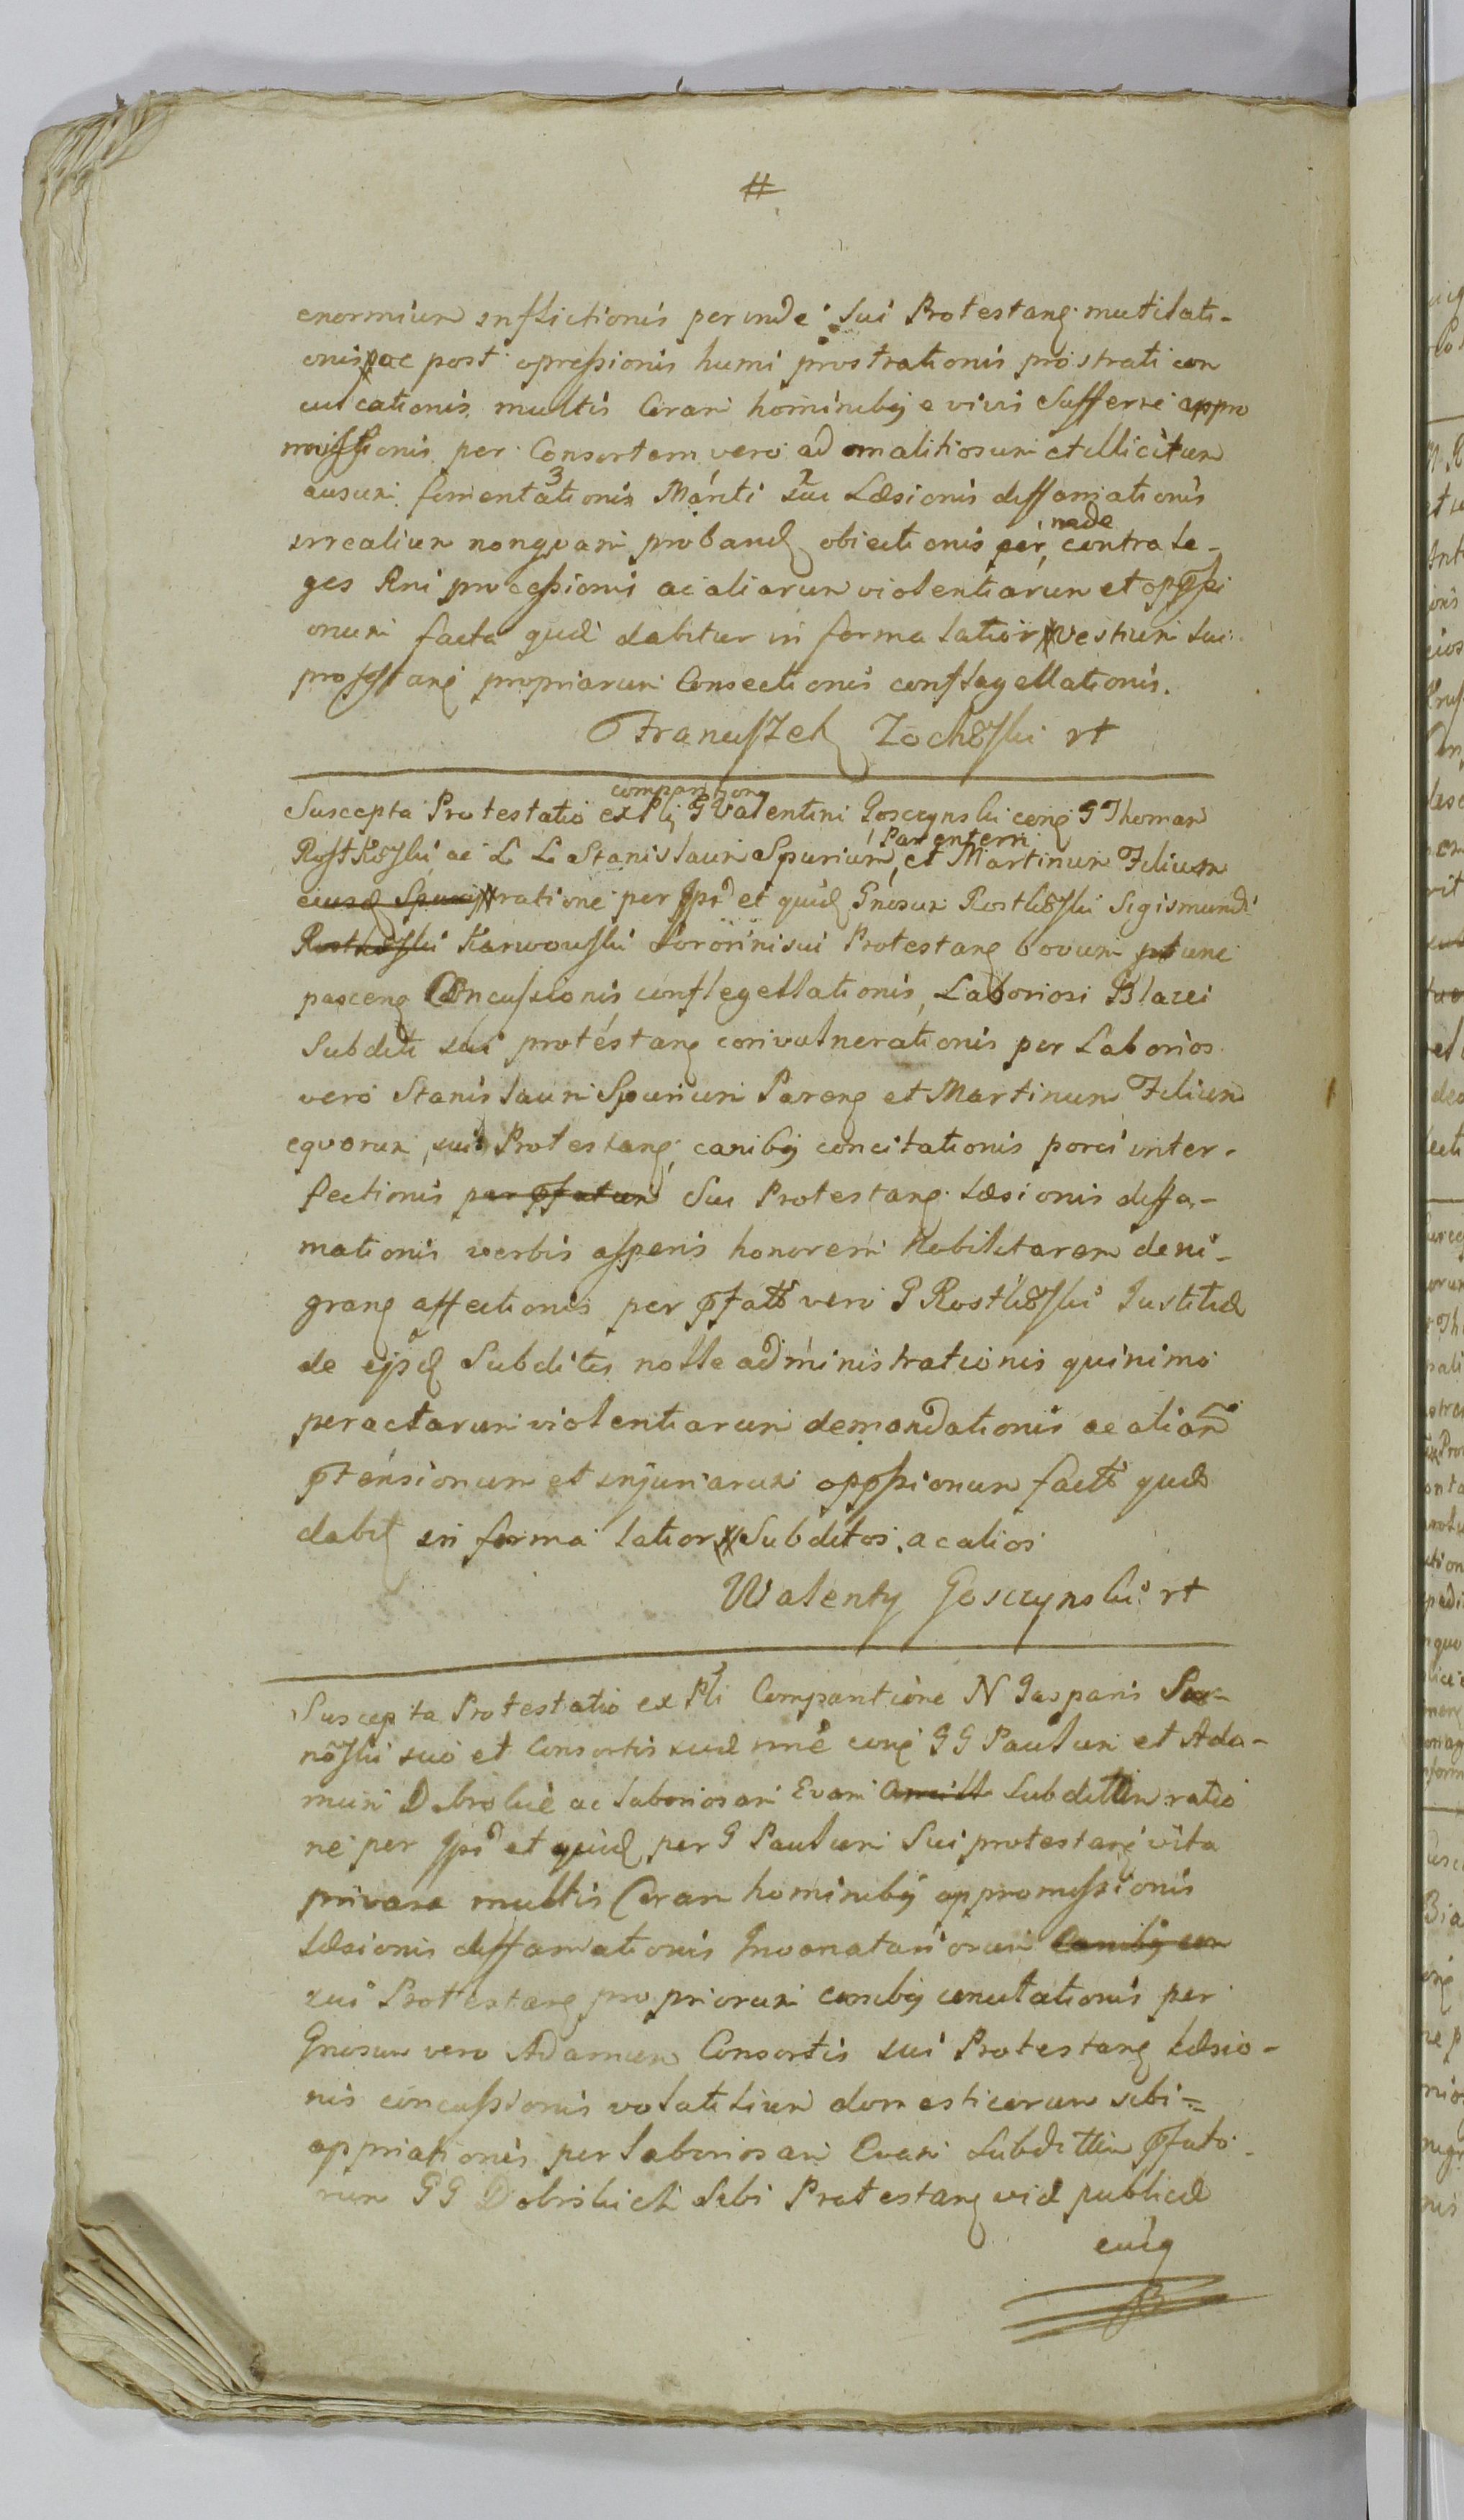 #
enormium inflictionis perinde sui Protestang mutilati-
onis ac post opressionis humi prostrationis prostrati con
culcationis multis Coram hominibg e vivis Sufferre appro
missionis per Consortem vero ad malitiosum et illicitum
ausum fomentationis Mariti sui Læsionis diffamationis
irrealium nonquam proband obiectionis per nde contra le-
ges Rni processionis ac aliarum violentiarum et oppssi
onum facta quæ dabitur in forma latior vestium sui
protestang propriarum Consectionis conflagellationis.
Franciszek Zochoski rt
Suscepta Protestatio ex Pli comparitione G Valentini Gosczynski cong G Thomam
Rostkoski ac L L Stanislaum Spurium, Parentem et Martinum Filium
eiusd Spurij ratione per Ipsd et quid Gnosum Rostkoski Sigismundi
Rostkoski Karwouski Sororini sui Protestang boum ptunc
pasceng Concussionis conflegellationis, Laboriosi Blazei
Subditi sui protestang convulnerationis per Laborios
vero Stanislaum Spurium Pareng et Martinum Filium
equorum, sui Protestang, canibg concitationis porci inter-
fectionis per pfatum Sui Protestang læsionis diffa-
mationis verbis asperis honorem Nobilitarem deni-
grang affectionis per pfatt vero G Rostkoski Iustitiæ
de ejsd Subditis nolle administrationis quinimo
peractarum violentiarum demandationis ac aliar
ptensionum et injuriarum oppssionum factt quæ
dabit in forma latior Subditos ac alios
Walenty Gosczynski rt
Suscepta Protestatio ex Pli Comparitione N Gasparis
noski suo et Consortis suæ nnē cong G G Paulum et Ada-
mum Dobrskie ac laboriosam Evam Ancill Subdittin ratio
ne per Ipsd et quid per G Paulum Sui protestang vita
privare multis Coram hominibg appromissionis
læsionis diffamationis Inventariorum Canibg con
sui Protestang propriorum canibg concitationis per
Gnosum vero Adamum Consortis sui Protestang læsio-
nis concussionis volatilium domesticorum sibi=
appriationis per laboriosam Evam Subdittin pfato-
rum G G Dobrskich Sibi Protestang viæ publicæ
cuig